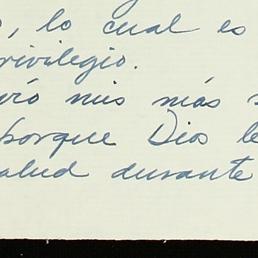 , lo cual es
rivilegio.
eró mis más s
porque Dios le
alud durante